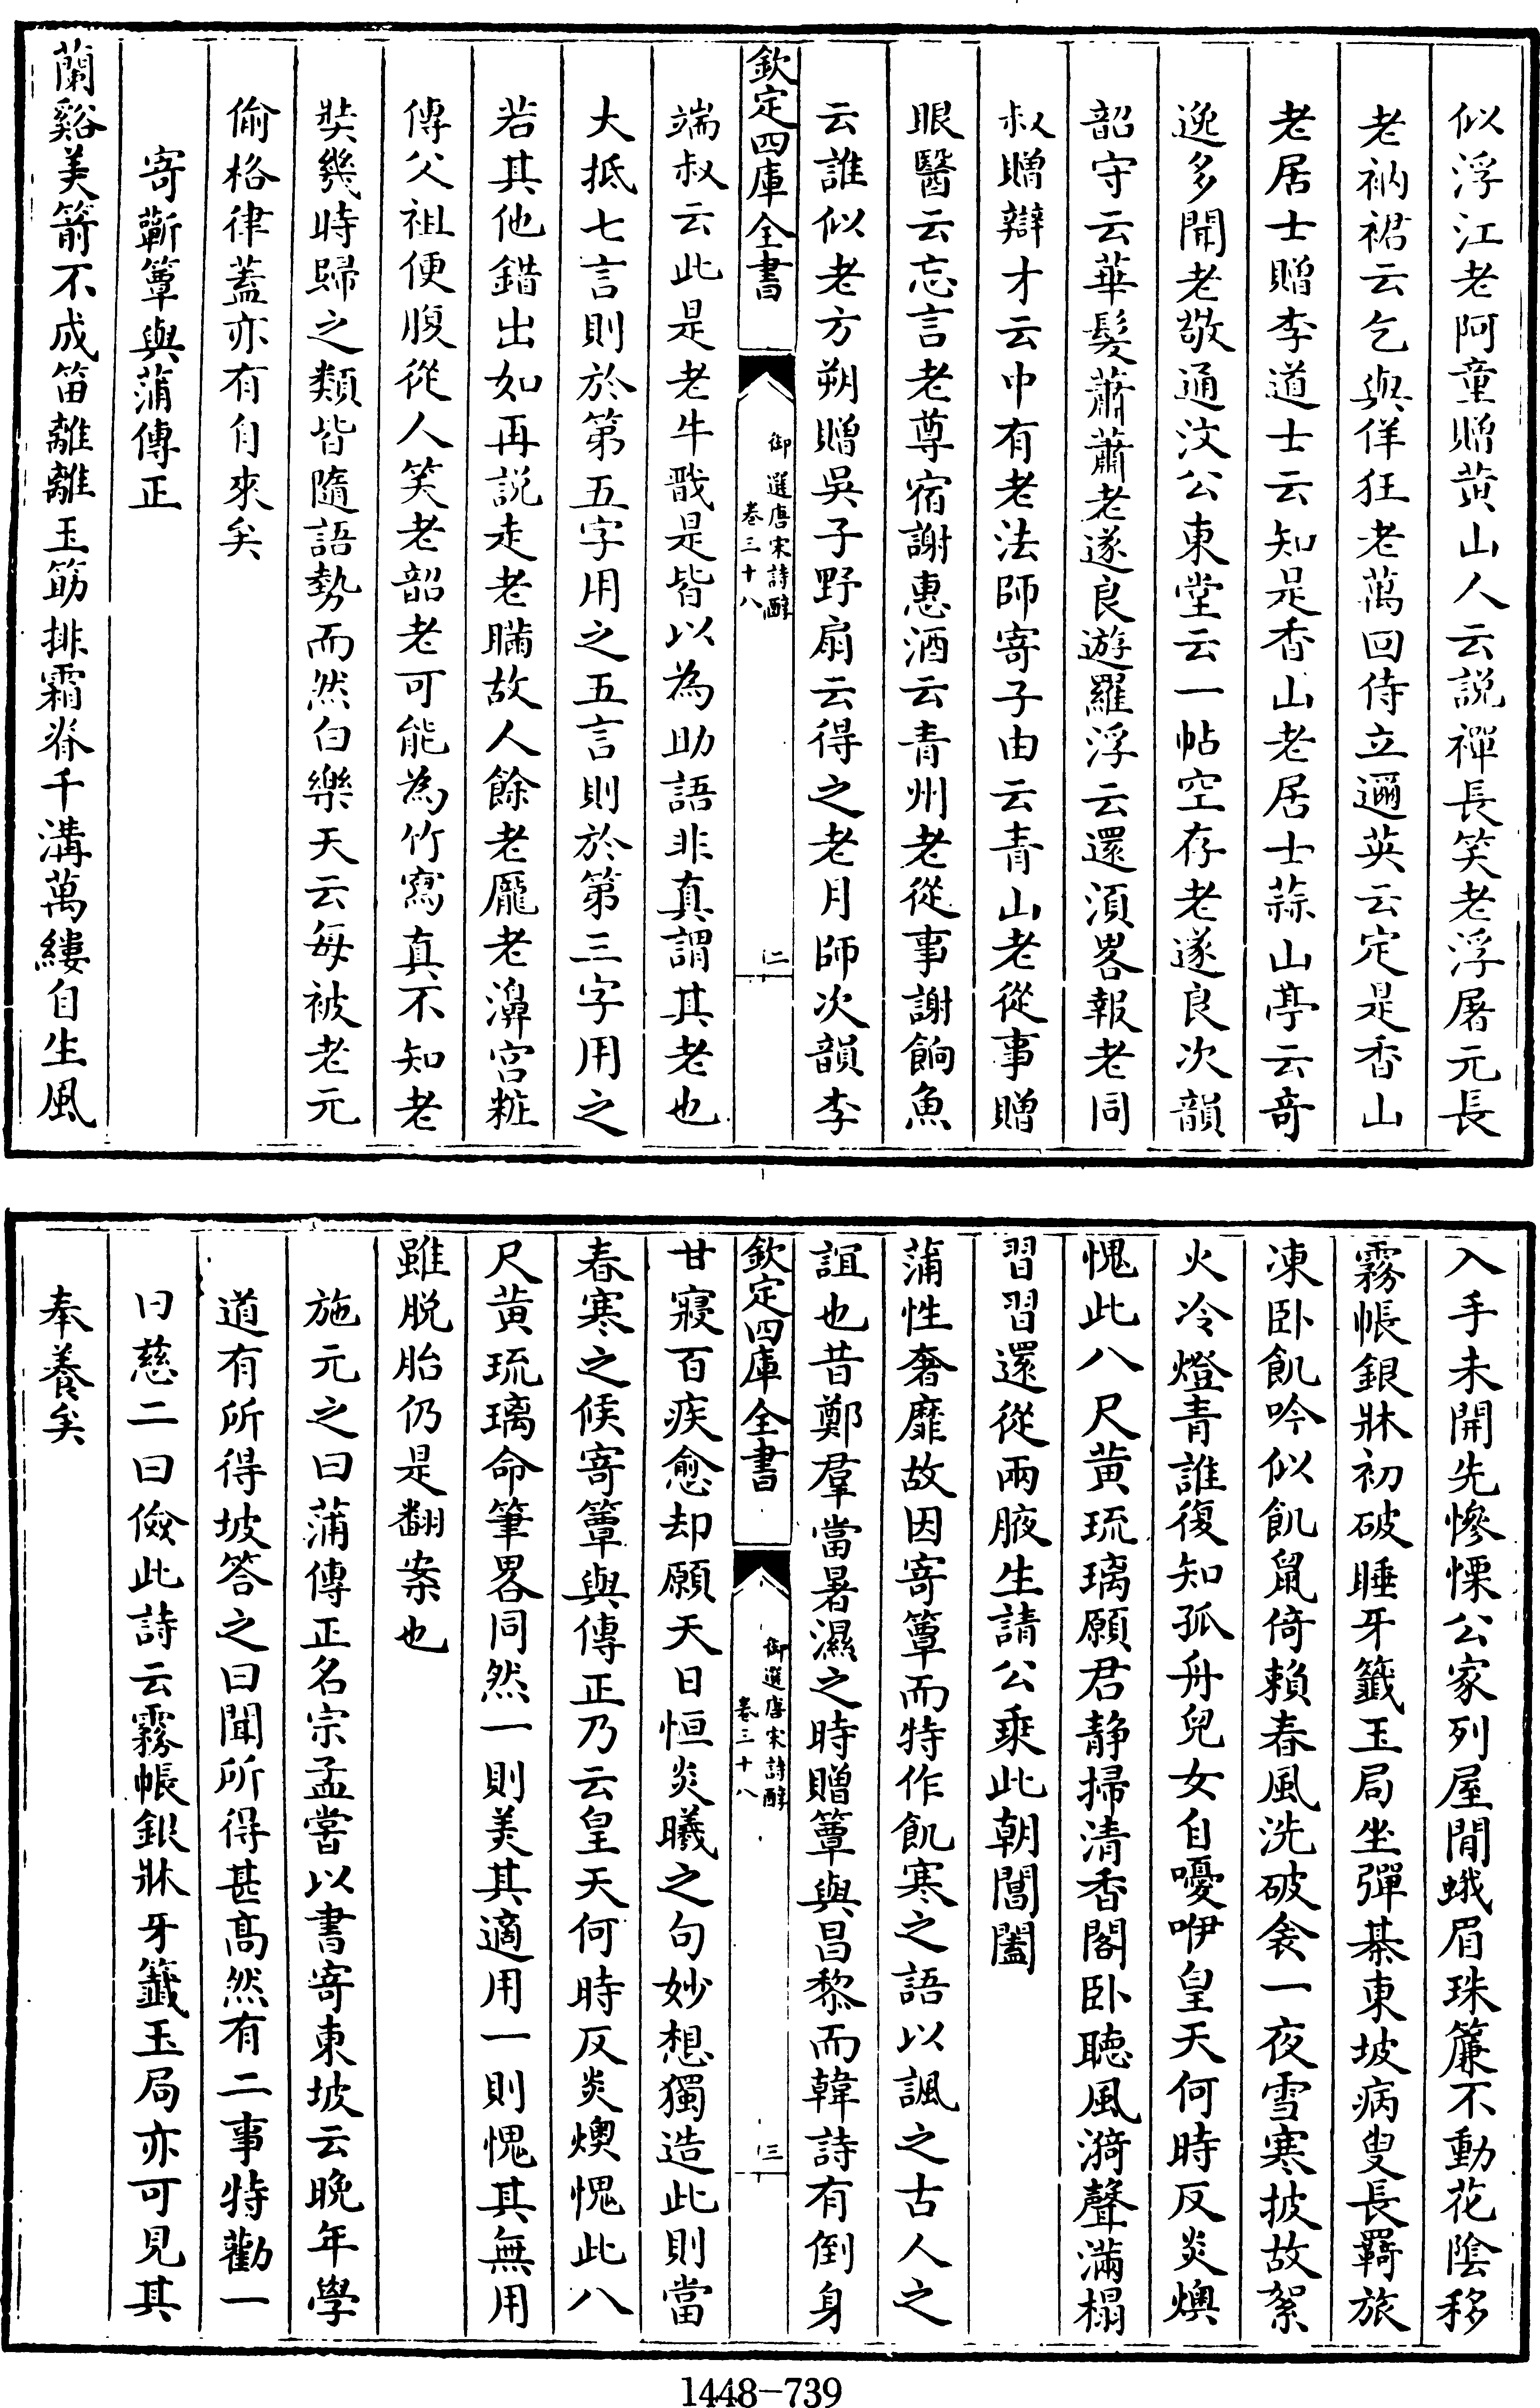 似浮江老阿童贈黄山人云説禪長笑老浮屠元長
老衲裙云乞與佯狂老萬回侍立邇英云定是香山
老居士贈李道士云知是香山老居士蒜山亭云竒
逸多聞老敬通汶公東堂云一帖空存老遂良次韻
韶守云華髮蕭蕭老遂良遊羅浮云還須畧報老同
叔贈辯才云中有老法師寄子由云青山老從事贈
眼醫云忘言老尊宿謝惠酒云青州老從事謝餉魚
云誰似老方朔贈吳子野扇云得之老月師次韻李
欽定四庫全書
御選唐宋詩醇
卷三十八
二
端叔云此是老牛戩是皆以為助語非真謂其老也
大抵七言則於第五字用之五言則於第三字用之
若其他錯出如再説走老瞞故人餘老龎老濞宫粧
傳父祖便腹從人笑老韶老可能為竹寫真不知老
奘幾時歸之類皆隨語勢而然白樂天云每被老元
偷格律蓋亦有自來矣
寄蘄簟與蒲傳正
蘭谿美箭不成笛離離玉筯排霜脊千溝萬縷自生風
入手未開先慘慄公家列屋閒蛾眉珠簾不動花陰移
霧帳銀牀初破睡牙籖玉局坐彈棊東坡病叟長羇旅
凍卧飢吟似飢鼠倚賴春風洗破衾一夜雪寒披故絮
火冷燈青誰復知孤舟兒女自嚘咿皇天何時反炎燠
愧此八尺黄琉璃願君静掃清香閣卧聴風漪聲滿榻
習習還從兩腋生請公乗此朝閶闔
蒲性奢靡故因寄簟而特作飢寒之語以諷之古人之
誼也昔鄭羣當暑濕之時贈簟與昌黎而韓詩有倒身
欽定四庫全書
御選唐宋詩醇
卷三十八
三
甘寢百疾愈却願天日恒炎曦之句妙想獨造此則當
春寒之候寄簟與傳正乃云皇天何時反炎燠愧此八
尺黄琉璃命筆畧同然一則美其適用一則愧其無用
雖脱胎仍是翻案也
施元之曰蒲傳正名宗孟嘗以書寄東坡云晩年學
道有所得坡答之曰聞所得甚髙然有二事特勸一
曰慈二曰儉此詩云霧帳銀牀牙籖玉局亦可見其
奉養矣
1448-739